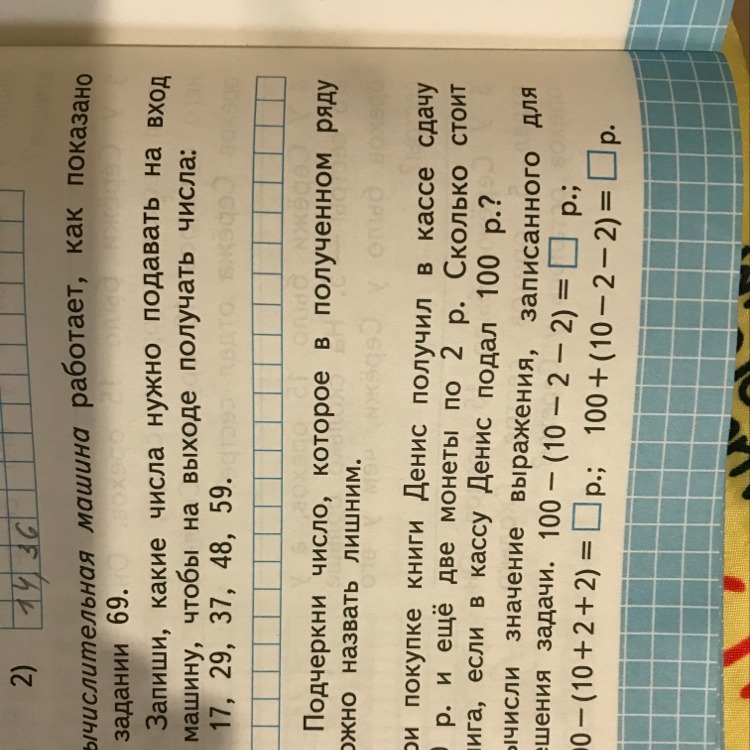 2)
14, 36
ычислительная машина работает, как показано
задании 69.
Запиши, какие числа нужно подавать на вход
машину, чтобы на выходе получать числа:
17, 29, 37, 48, 59.
Подчеркни число, которое в полученном ряду
ожно назвать лишним.
ри покупке книги Денис получил в кассе сдачу
0 р. и ещё две монеты по 2 р. Сколько стоит
нига, если в кассу Денис подал 100 р.?
ычисли значение выражения, записанного для
ешения задачи. 100 − (10 − 2 − 2) = □ р.;
00 − (10 + 2 + 2) = □ р.; 100 + (10 − 2 − 2) = □ р.